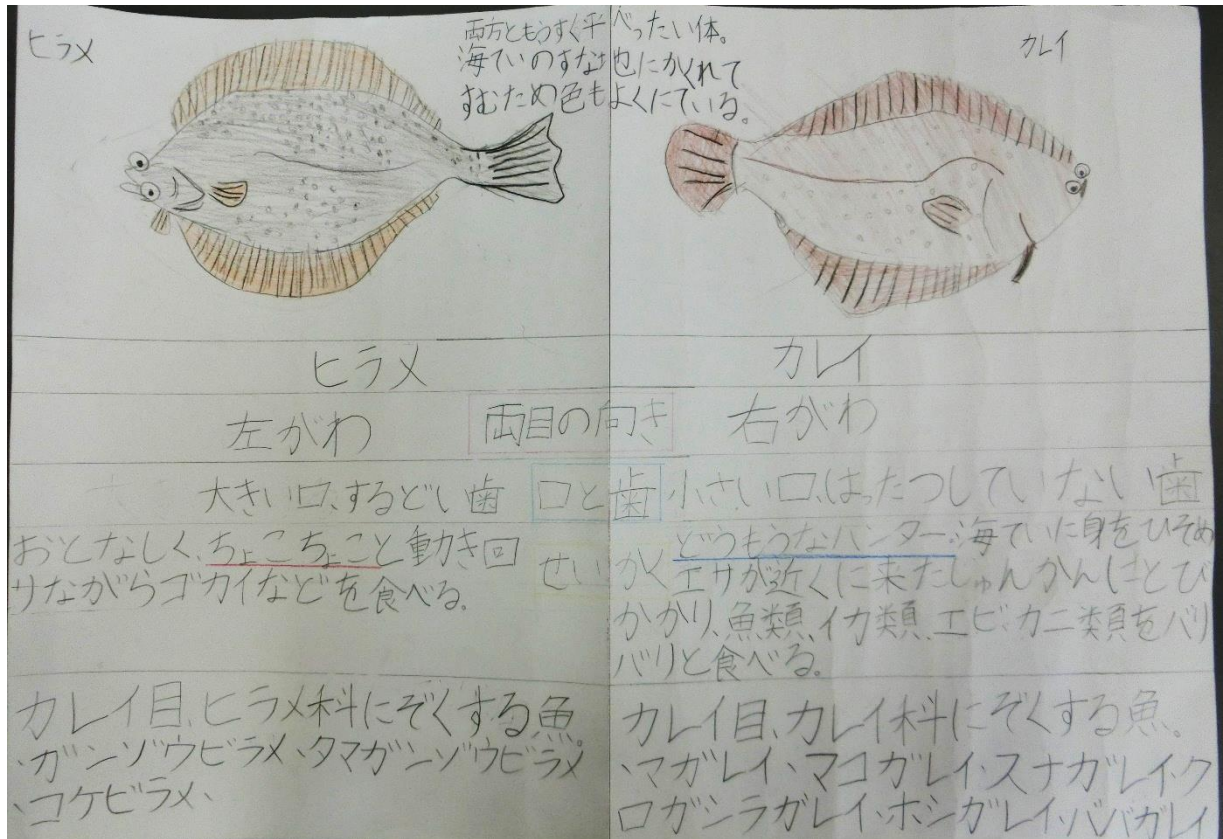 ヒラメ
両方ともうすく平べったい体。
海ていのすな地にかくれて
すむため色もよくにている。
カレイ
ヒラメ
カレイ
左がわ
両目の向き
右がわ
大きい口、するどい歯
口と歯
小さい口、はったつしていない歯
おとなしく、ちょこちょこと動き回
りながらゴカイなどを食べる。
せいかく
どうもうなハンター。海ていに身をひそめ
エサが近くに来たしゅんかんにとび
かかり、魚類、イカ類、エビ・カニ類をバリ
バリと食べる。
カレイ目、ヒラメ科にぞくする魚。
、ガンゾウビラメ、タマガンゾウビラメ
、コケビラメ、
カレイ目、カレイ科にぞくする魚。
、マガレイ、マコガレイ、スナガレイ、ク
ロガシラガレイ、ホシガレイ、ババガレイ